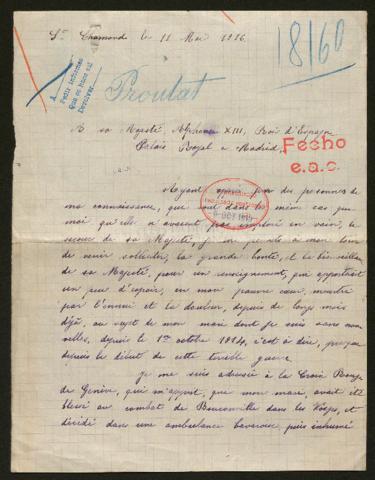 St Chamond le 11 Mai 1916.
18160
A
Pedir informes
que se hace así
Proutat
A sa Majesté Alphonse XIII, Roi d'Espagne
Palais Royal à Madrid.
Fecho
e.a.c.
Ayant appris par des personnes de
ma connaissance, que sont dans le même cas que
moi qu'elle n'avaient pas employé en vain, le
secours de sa Majesté, je me permets à mon tour
de venir solliciter, la grande bonté, et la bienveillance
de sa Majesté, pour un renseignement, qui apporterait
un peu d'espoir, en mon pauvre cœur, meurtri
par l'ennui et la douleur, depuis de longs mois
déjà, au sujet de mon mari dont je suis sans nou
velles, depuis le 1er octobre 1914, c'est à dire, presque
depuis le début de cette terrible guerre.
Je me suis adressée à la Croix Rouge
de Genève, qui m'apprit, que mon mari, avait été
blessé au combat de Bouconville dans les Vosges, et
décédé dans une ambulance bavaroise, puis inhumé